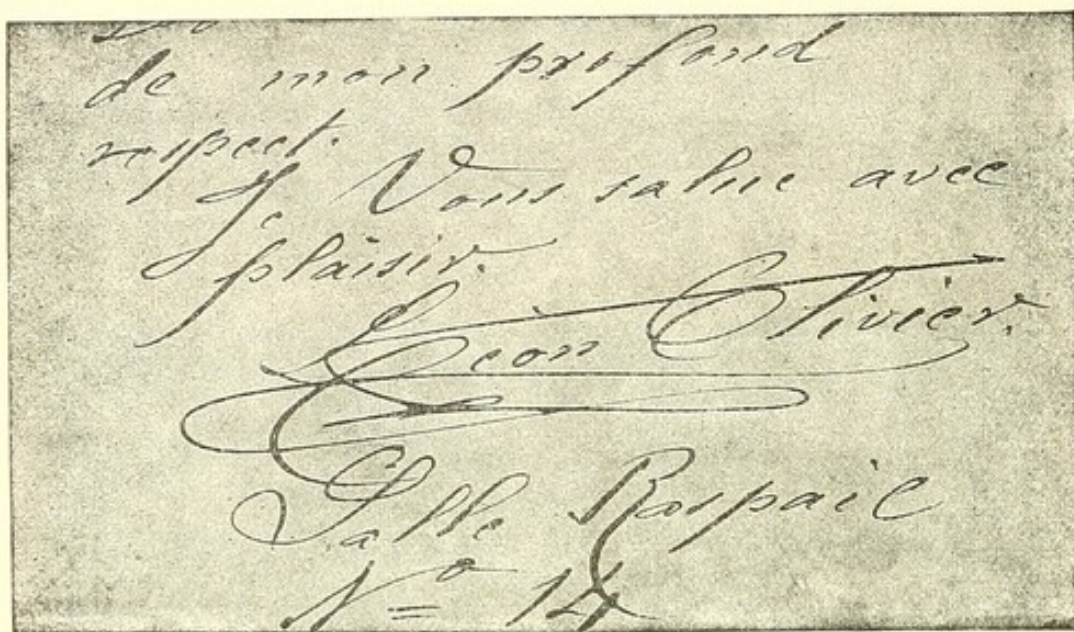 de mon profond
respect.
Je Vous salue avec
plaisir.
Léon Olivier.
Salle Raspail
Nº 14